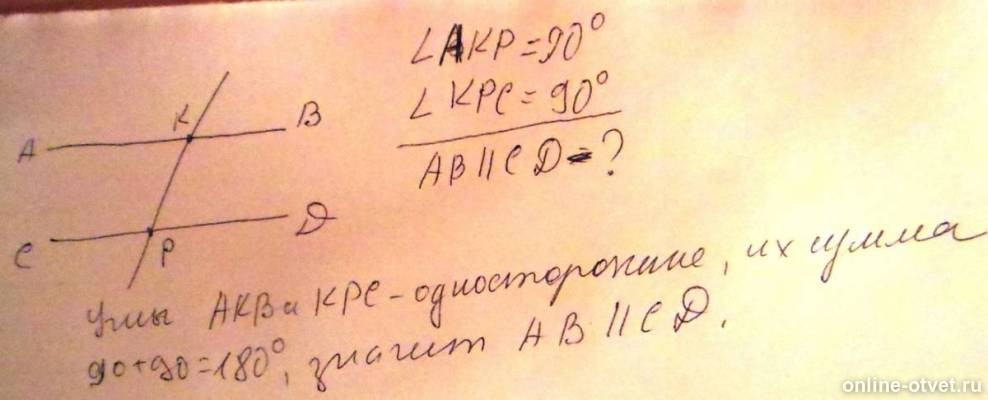 ∠AKP=90°
∠KPC=90°
AB||CD-?
K
B
A
C
P
D
Углы АКВ и КРС - односторонние, их сумма
90+90=180°, значит AB||CD.
online-otvet.ru